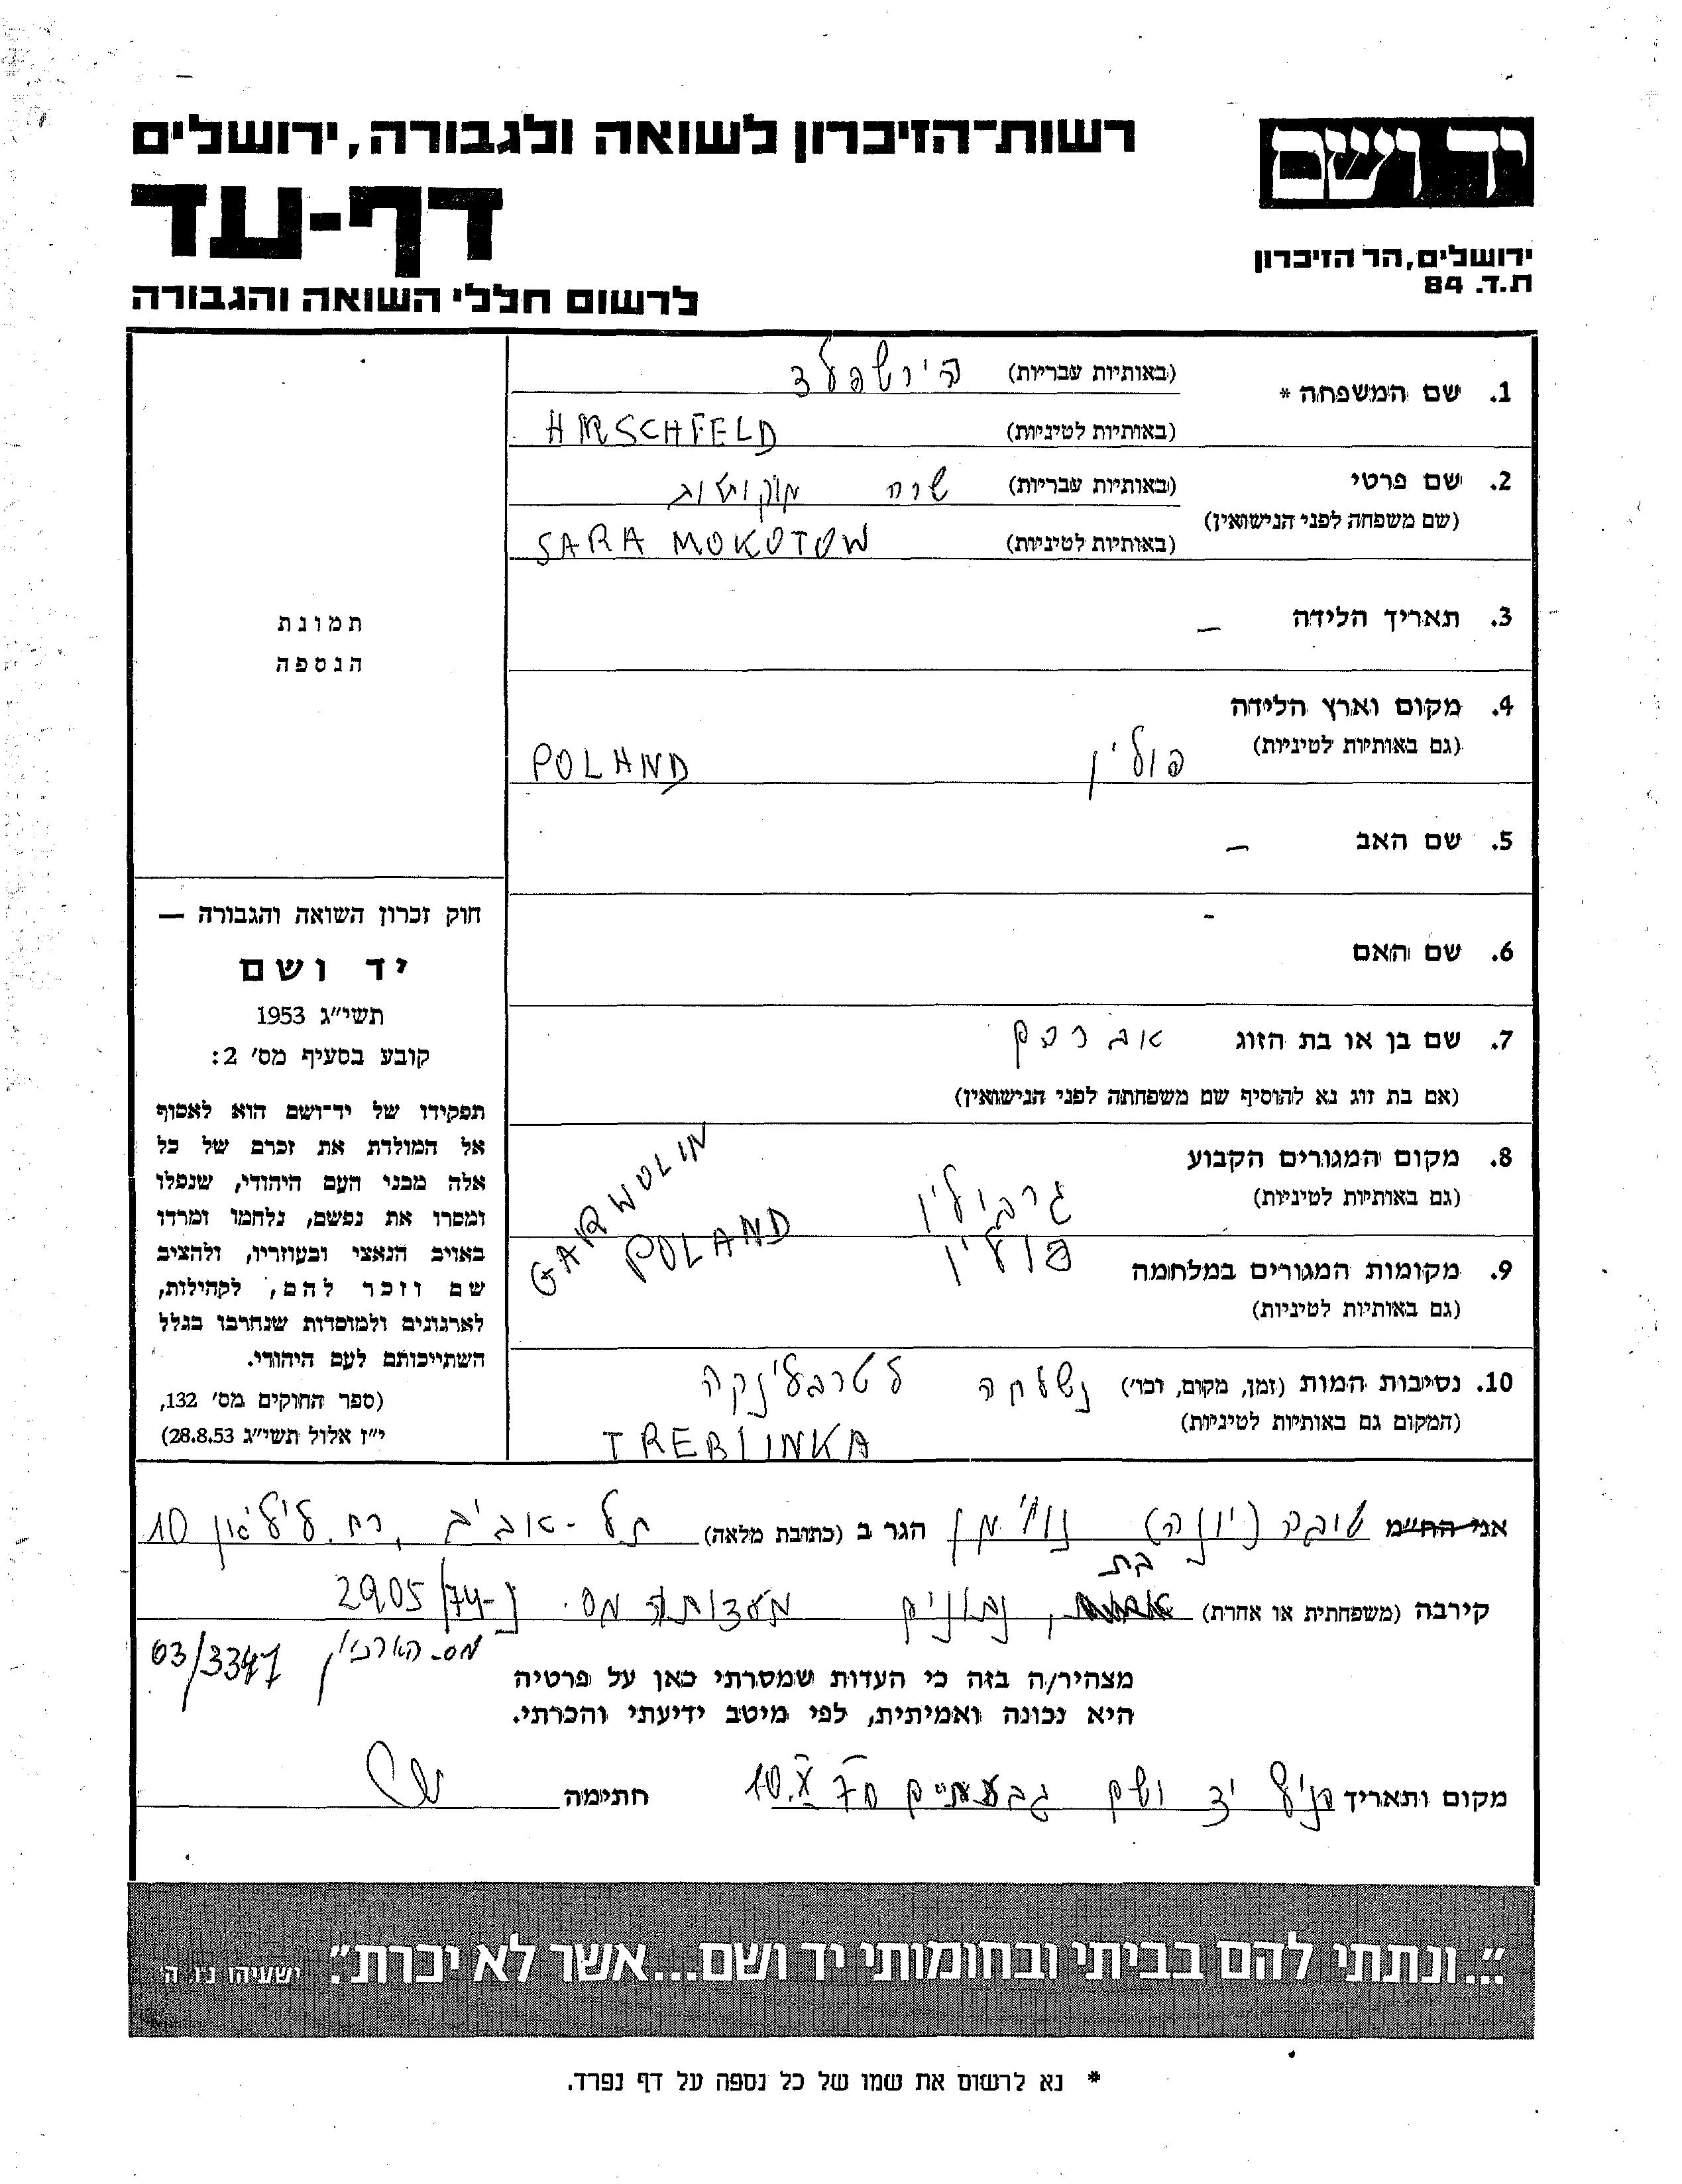 יד ושם
ירושלים, הר הזיכרון
ת.ד. 84
רשות־הזיכרון לשואה ולגבורה, ירושלים
דף-עד
לרשום חללי השואה והגבורה
1. שם המשפחה * (באותיות עבריות) הירשפלד
(באותיות לטיניות) HIRSCHFELD
2. שם פרטי (באותיות עבריות) שרה מוקוטוב
(שם משפחה לפני הנישואין) (באותיות לטיניות) SARA MOKOTOW
3. תאריך הלידה –
4. מקום וארץ הלידה
(גם באותיות לטיניות) פולין POLAND
5. שם האב –
6. שם האם -
7. שם בן או בת הזוג אברהם
(אם בת זוג נא להוסיף שם משפחתה לפני הנישואין)
8. מקום המגורים הקבוע
(גם באותיות לטיניות) גרבולין GARWOLIN
פולין POLAND
9. מקומות המגורים במלחמה
(גם באותיות לטיניות)
10. נסיבות המות (זמן, מקום, וכו') נשלחה לטרבלינקה
(המקום גם באותיות לטיניות) TREBLINKA
תמונת
הנספה
חוק זכרון השואה והגבורה —
יד ושם
תשי״ג 1953
קובע בסעיף מס׳ 2:
תפקידו של יד־ושם הוא לאסוף
אל המולדת את זכרם של כל
אלה מבני העם היהודי, שנפלו
ומסרו את נפשם, נלחמו ומרדו
באויב הנאצי ובעוזריו, ולהציב
שם וזכר להם, לקהילות,
לארגונים ולמוסדות שנחרבו בגלל
השתייכותם לעם היהודי.
(ספר החוקים מס׳ 132,
י״ז אלול תשי״ג 28.8.53)
אני החי״מ טובה (יונה) נוימן הגר ב (כתובת מלאה) תל-אביב, רח. 10
בת
קירבה (משפחתית או אחרת) , נתונים מעדותה מס. 2905
מס. הארכיון 03/3347
מצהיר/ה בזה כי העדות שמסרתי כאן על פרטיה
היא נכונה ואמיתית, לפי מיטב ידיעתי והכרתי.
מקום ותאריך הנ״ל יד ושם גבעתיים 10.X חתימה
״...ונתתי להם בביתי ובחומותי יד ושם...אשר לא יכרת״. ישעיהו נ״ו, ה׳
* נא לרשום את שמו של כל נספה על דף נפרד.